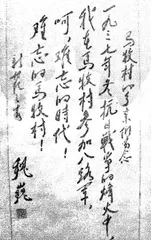 马牧村
一九三七年抗日战争的烽火中，
我在马牧村参加八路军，
呵难忘的时代！
难忘的马牧村！
魏巍